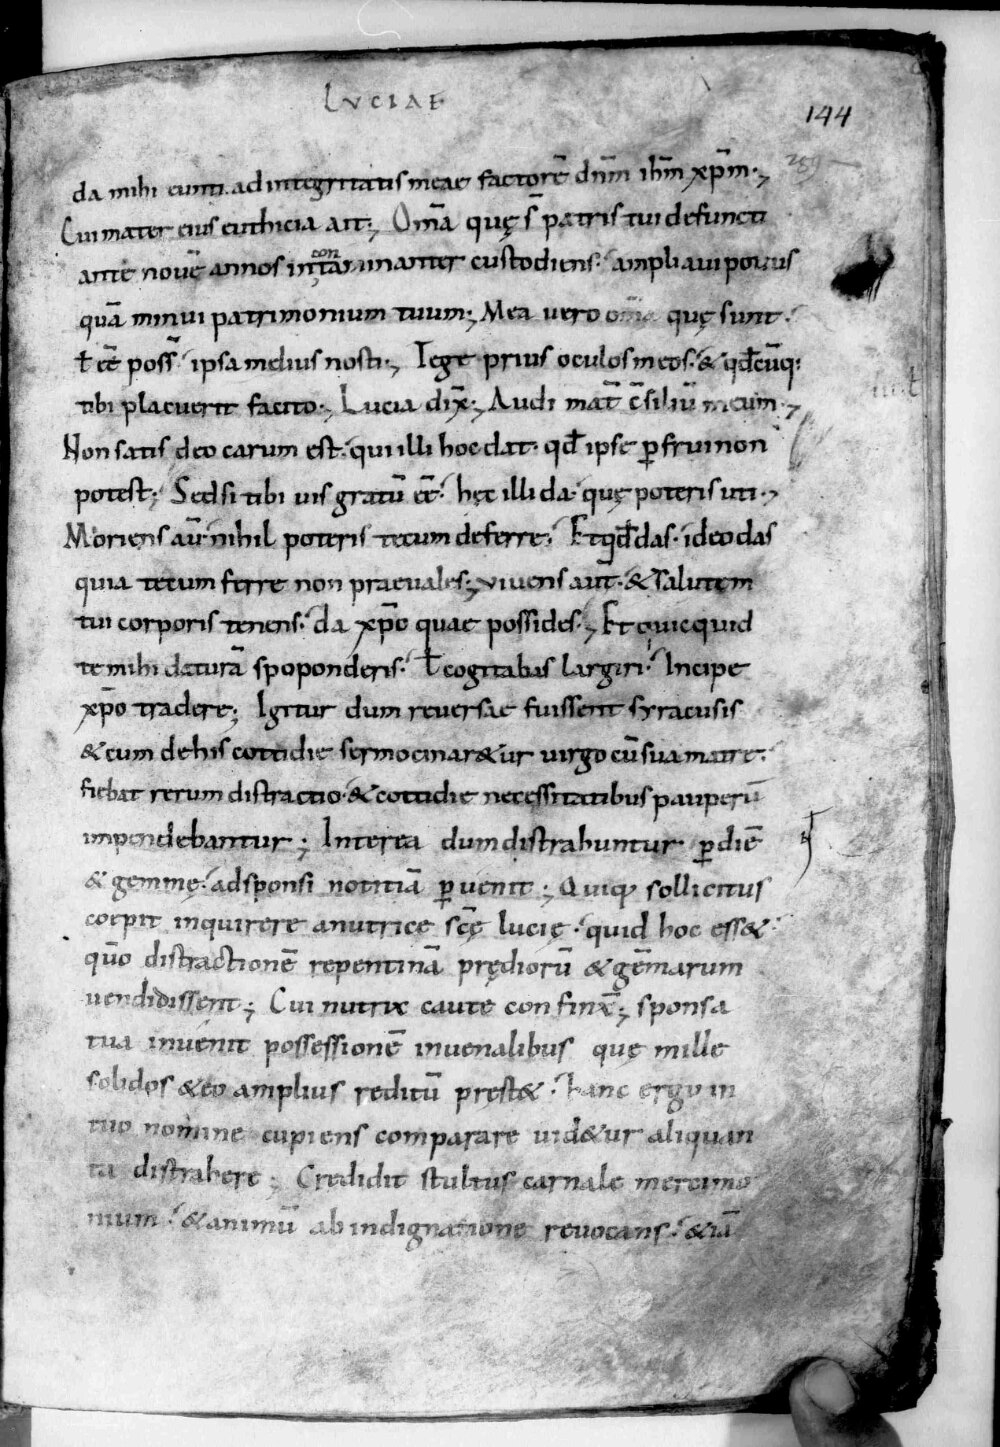 LUCIAE
144
289
da mihi eunti. ad integritatis meae factorē dn̄m ihm̄ xp̄m·,
Cui mater eius euthicia ait; Om̄a quę s̄ patris tui defuncti
ante nouē annos in con taminanter custodiens. ampliaui potius
quā minui patrimonium tuum; Mea uero om̄ia quę sunt.
ł eē poss̄ ipsa melius nosti·, Tege prius oculos meos. & qđcūq:
tibi placuerit facito·, Lucia dix̄; Audi mat̄ c̄siliū meum·,
Non satis deo carum est. qui illi hoc dat. qđ ipse ꝑfrui non
potest; Sed si tibi uis gratū eē. hęc illi da. quę poteris uti·,
Moriens aū nihil poteris tecum deferre. Et qđ das. ideo das
quia tecum ferre non praeuales; uiuens aut̄. & salutem
tui corporis tenens. da xp̄o quae possides·, Et quicquid
te mihi daturā spoponderis. ł cogitabas largiri. Incipe
xp̄o tradere; Igitur dum reuersae fuissent syracusis
& cum de his cottidie sermocinar&ur uirgo cū sua matre.
fiebat rerum distractio. & cottidie necessitatibus pauperū
impendebantur; Interea dum distrahuntur ꝑ diē
& gemmę. ad sponsi notitiā ꝑuenit; Quiq; sollicitus
coepit inquirere a nutrice scę̄ lucię. quid hoc ess&.
quō distractionē repentinā prędiorū & gēmarum
uendidissent; Cui nutrix caute confinx̄; sponsa
tua inuenit possessionē in uenalibus quę mille
solidos & eo amplius reditū pręst&. hanc ergo in
tuo nomine cupiens comparare uid&ur aliquan
ta distrahere; Credidit stultus carnale mercimo
nium. & animū ab indignatione reuocans. & iā